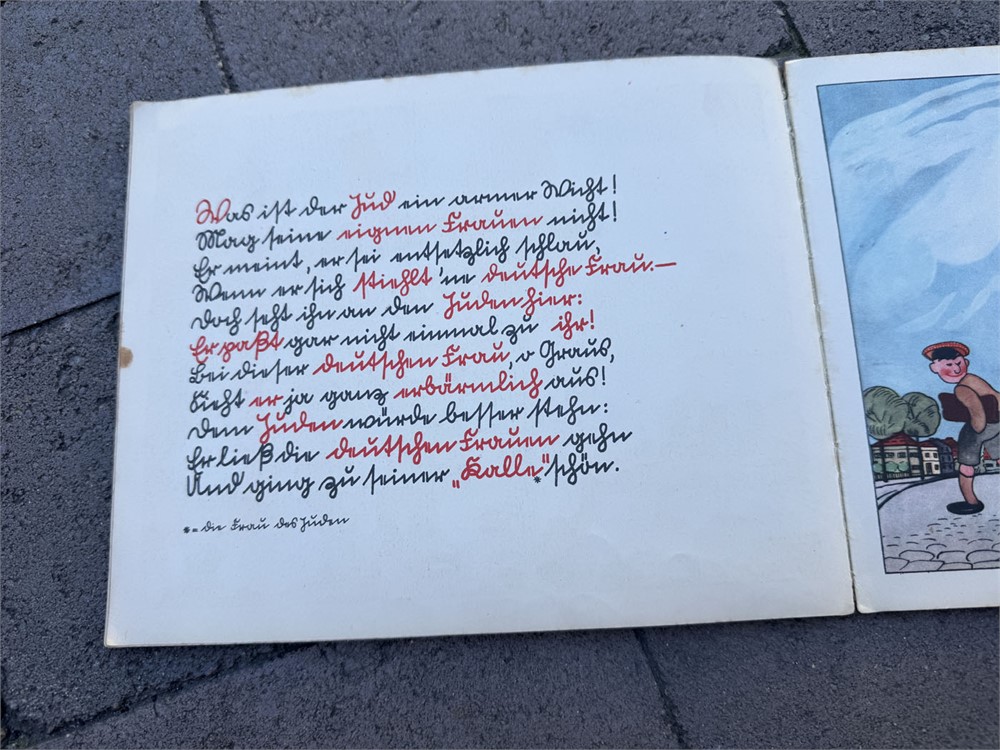 Was ist der Jud ein armer Wicht!
Mag seine eignen Frauen nicht!
Er meint, er sei entsetzlich schlau,
Wenn er sich stiehlt 'ne deutsche Frau.—
Doch seht ihn an den Juden hier:
Er paßt gar nicht einmal zu ihr!
Bei dieser deutschen Frau, o Graus,
Sieht er ja ganz erbärmlich aus!
Dem Juden würde besser stehn:
Er ließ die deutschen Frauen gehn
Und ging zu seiner „Kalle"* schön.
*= die Frau des Juden